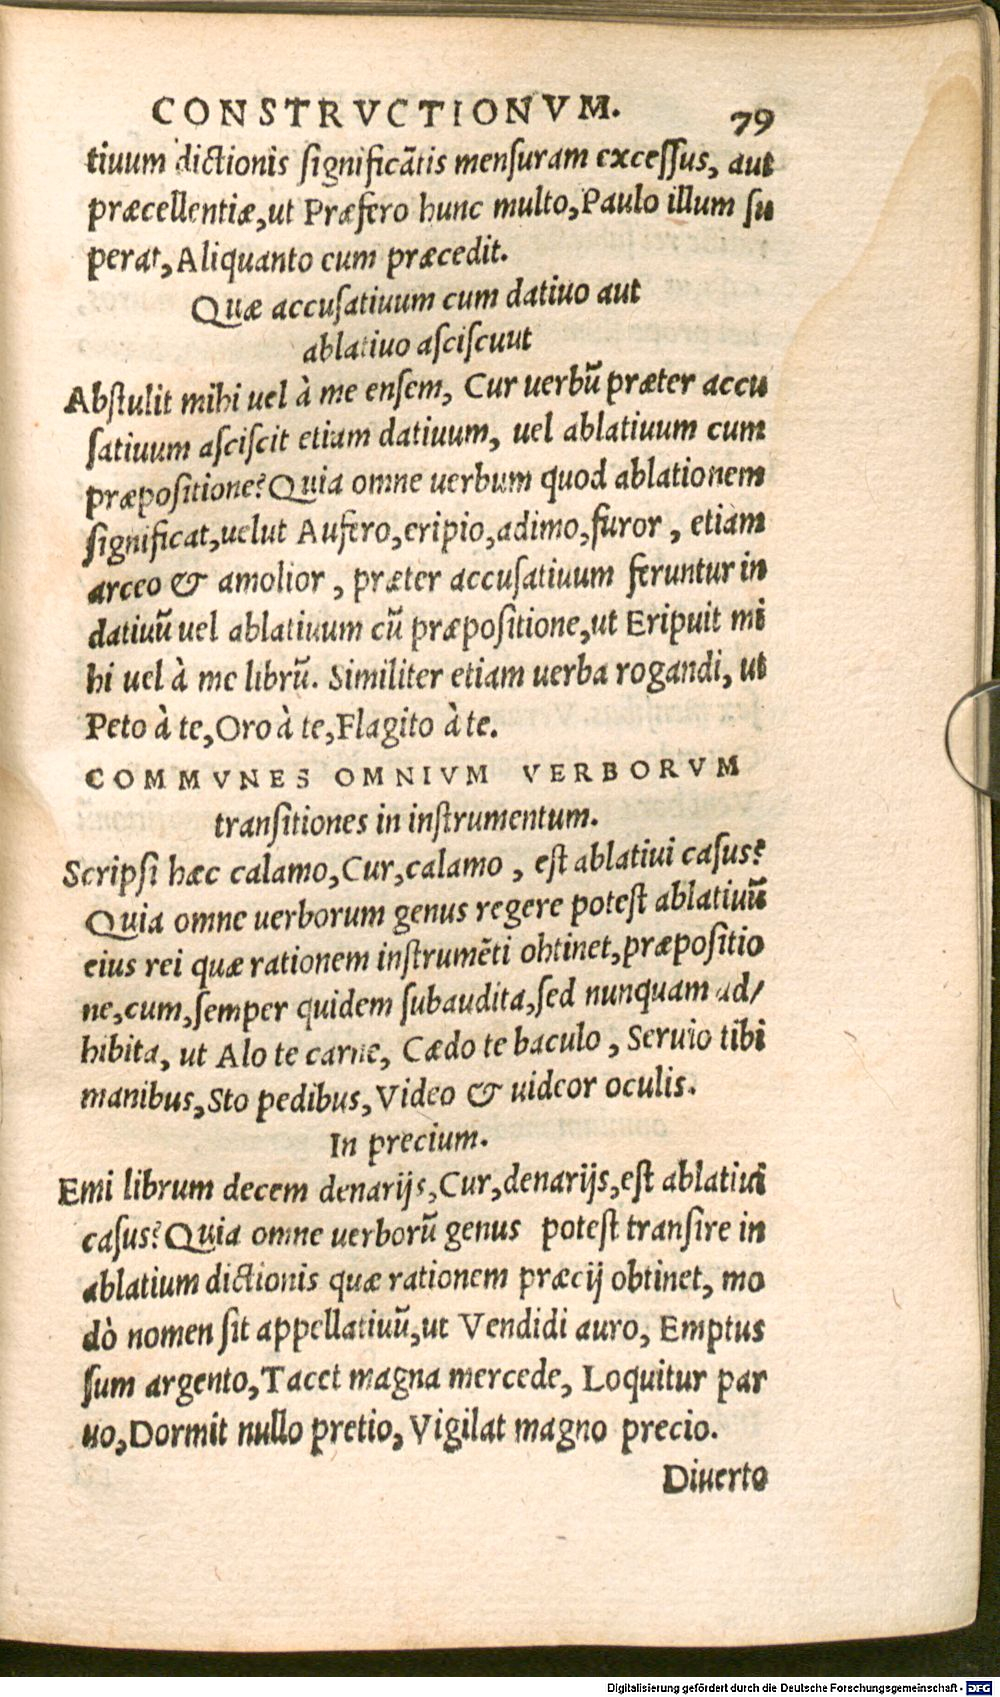 CONSTRVCTIONVM. 79
tiuum dictionis ſignificãtis menſuram exceſſus, aut
præcellentiæ,ut Præfero hunc multo,Paulo illum ſu
perat,Aliquanto cum præcedit.
Quæ accuſatiuum cum datiuo aut
ablatiuo aſciſcuut
Abſtulit mihi uel à me enſem, Cur uerbũ præter accu
ſatiuum aſciſcit etiam datiuum, uel ablatiuum cum
præpoſitione? Quia omne uerbum quod ablationem
ſignificat,uelut Aufero,eripio,adimo,furor , etiam
arceo & amolior , præter accuſatiuum feruntur in
datiuũ uel ablatiuum cũ præpoſitione,ut Eripuit mi
hi uel à me librũ. Similiter etiam uerba rogandi, ut
Peto à te,Oro à te,Flagito à te.
COMMVNES OMNIVM VERBORVM
tranſitiones in inſtrumentum.
Scripſi hæc calamo,Cur,calamo , eſt ablatiui caſus?
Quia omne uerborum genus regere poteſt ablatiuũ
eius rei quæ rationem inſtrumẽti obtinet,præpoſitio
ne,cum,ſemper quidem ſubaudita,ſed nunquam ad/
hibita, ut Alo te carne, Cædo te baculo , Seruio tibi
manibus,Sto pedibus,Video & uideor oculis.
In precium.
Emi librum decem denarijs,Cur,denarijs,eſt ablatiui
caſus? Quia omne uerborũ genus poteſt tranſire in
ablatium dictionis quæ rationem præcij obtinet, mo
dò nomen ſit appellatiuũ,ut Vendidi auro, Emptus
ſum argento,Tacet magna mercede, Loquitur par
uo,Dormit nullo pretio, Vigilat magno precio.
Diuerto
Digitalisierung gefördert durch die Deutsche Forschungsgemeinschaft - DFG